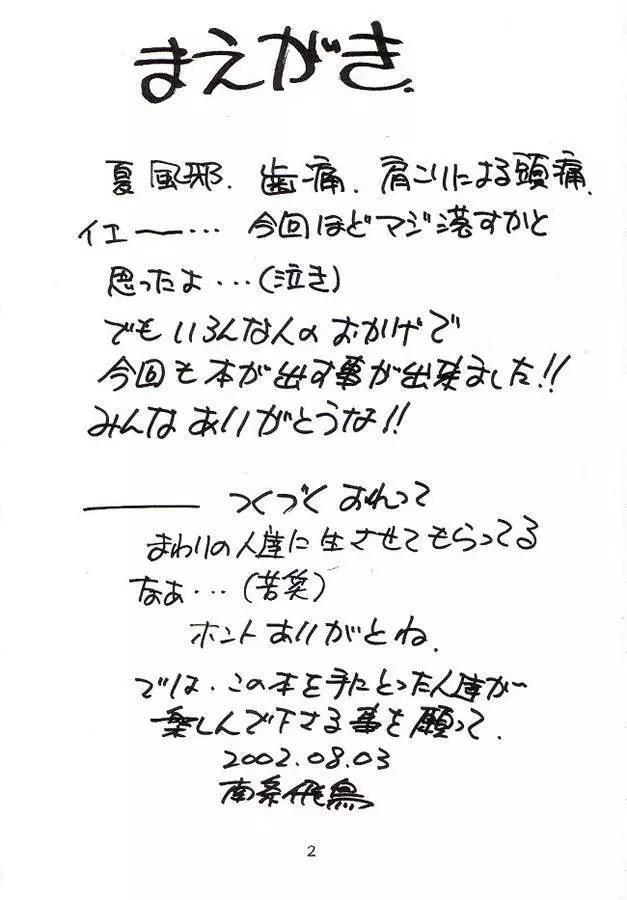 まえがき.
夏風邪. 歯痛. 肩こりによる頭痛.
イエー—… 今回ほどマジ落すかと
思ったよ…(泣き)
でもいろんな人のおかげで
今回も本が出す事が出来ました!!
みんなありがとうな!!
——— つくづくおれって
まわりの人達に生させてもらってる
なぁ…(苦笑)
ホントありがとね.
では.この本を手にとった人達が
楽しんで下さる事を願って.
2002.08.03
南条飛鳥
2